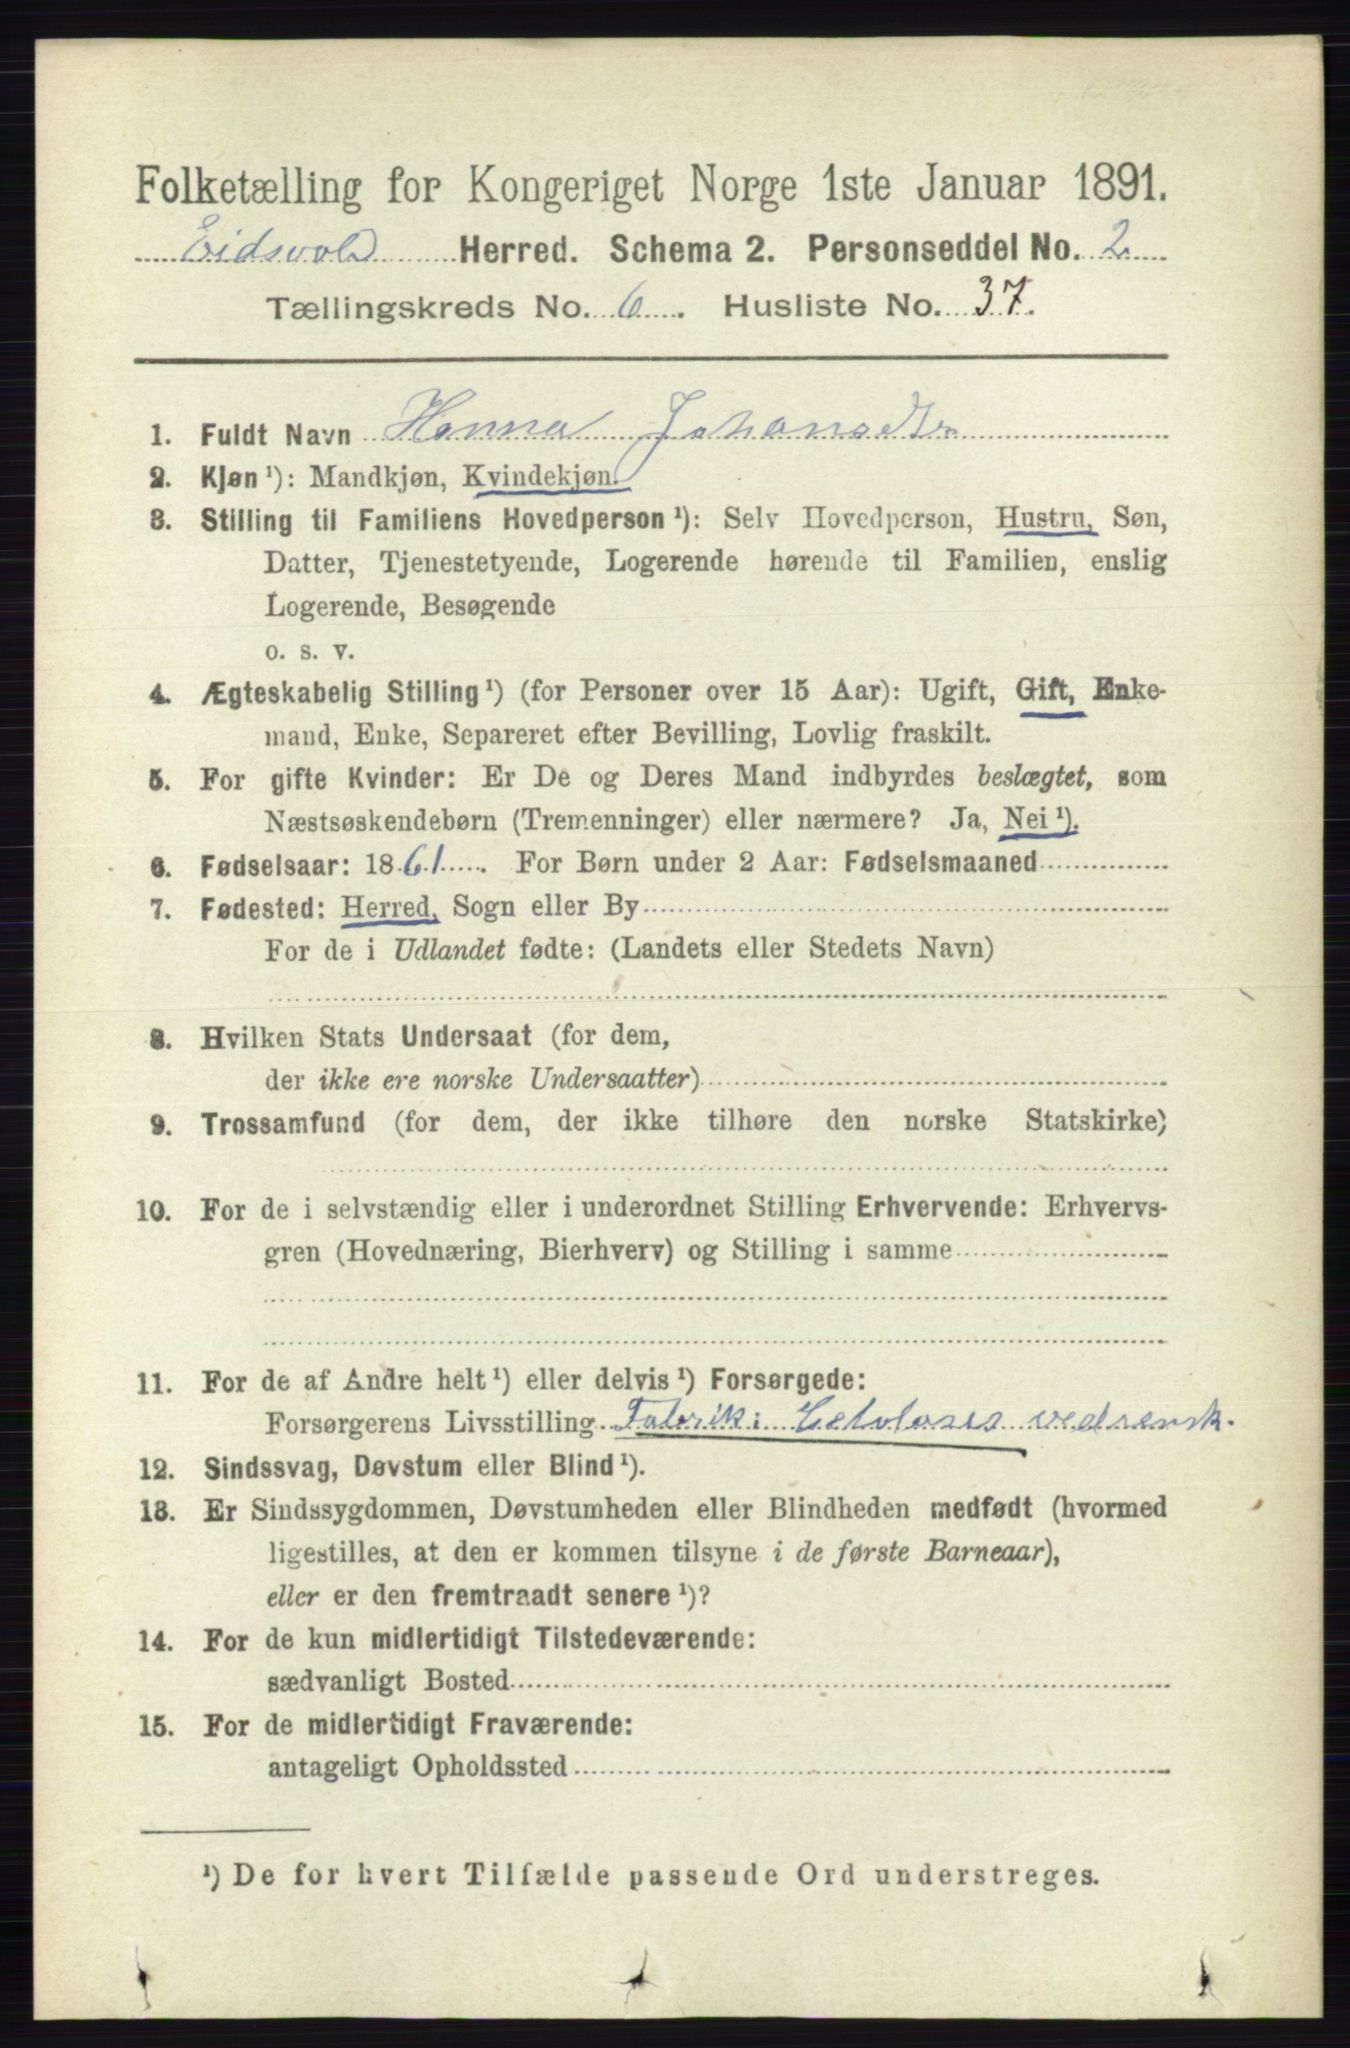 Folketælling for Kongeriget Norge 1ste Januar 1891.
Eidsvold Herred. Schema 2. Personseddel No. 2
Tællingskreds No. 6. Husliste No. 37.
1. Fuldt Navn Hanna Johansdtr
2. Kjøn ¹): Mandkjøn, Kvindekjøn.
3. Stilling til Familiens Hovedperson ¹): Selv Hovedperson, Hustru, Søn,
Datter, Tjenestetyende, Logerende hørende til Familien, enslig
Logerende, Besøgende
o. s. v.
4. Ægteskabelig Stilling ¹) (for Personer over 15 Aar): Ugift, Gift, Enke-
mand, Enke, Separeret efter Bevilling, Lovlig fraskilt.
5. For gifte Kvinder: Er De og Deres Mand indbyrdes beslægtet, som
Næstsøskendebørn (Tremenninger) eller nærmere? Ja, Nei ¹).
6. Fødselsaar: 1861. For Børn under 2 Aar: Fødselsmaaned
7. Fødested: Herred, Sogn eller By
For de i Udlandet fødte: (Landets eller Stedets Navn)
8. Hvilken Stats Undersaat (for dem,
der ikke ere norske Undersaatter)
9. Trossamfund (for dem, der ikke tilhøre den norske Statskirke)
10. For de i selvstændig eller i underordnet Stilling Erhvervende: Erhvervs-
gren (Hovednæring, Bierhverv) og Stilling i samme
11. For de af Andre helt ¹) eller delvis ¹) Forsørgede:
Forsørgerens Livsstilling Fabrik: vedrensk.
12. Sindssvag, Døvstum eller Blind ¹).
13. Er Sindssygdommen, Døvstumheden eller Blindheden medfødt (hvormed
ligestilles, at den er kommen tilsyne i de første Barneaar),
eller er den fremtraadt senere ¹)?
14. For de kun midlertidigt Tilstedeværende:
sædvanligt Bosted
15. For de midlertidigt Fraværende:
antageligt Opholdssted
¹) De for hvert Tilfælde passende Ord understreges.